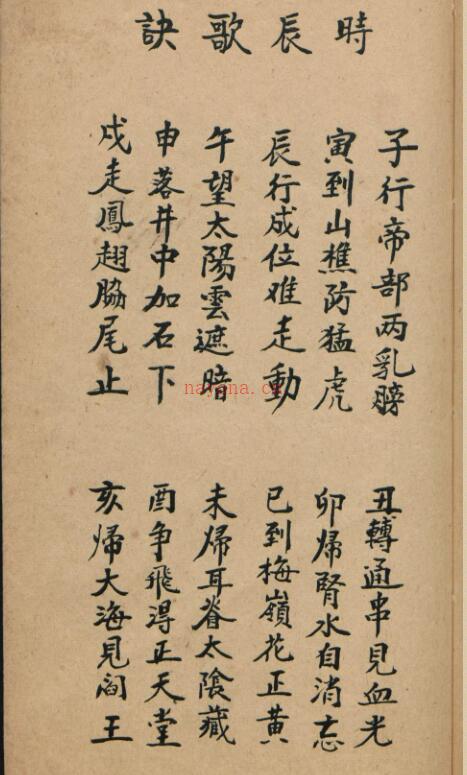 時辰歌訣
子行帝部两乳膀
丑轉通串見血光
寅到山樵防猛虎
卯帰腎水自消忘
辰行成位难走動
已到梅嶺花正黄
午望太陽雲遮暗
未帰耳脊太陰藏
申落井中加石下
酉争飛淂正天堂
戌走鳳翅脇尾止
亥帰大海見阎王